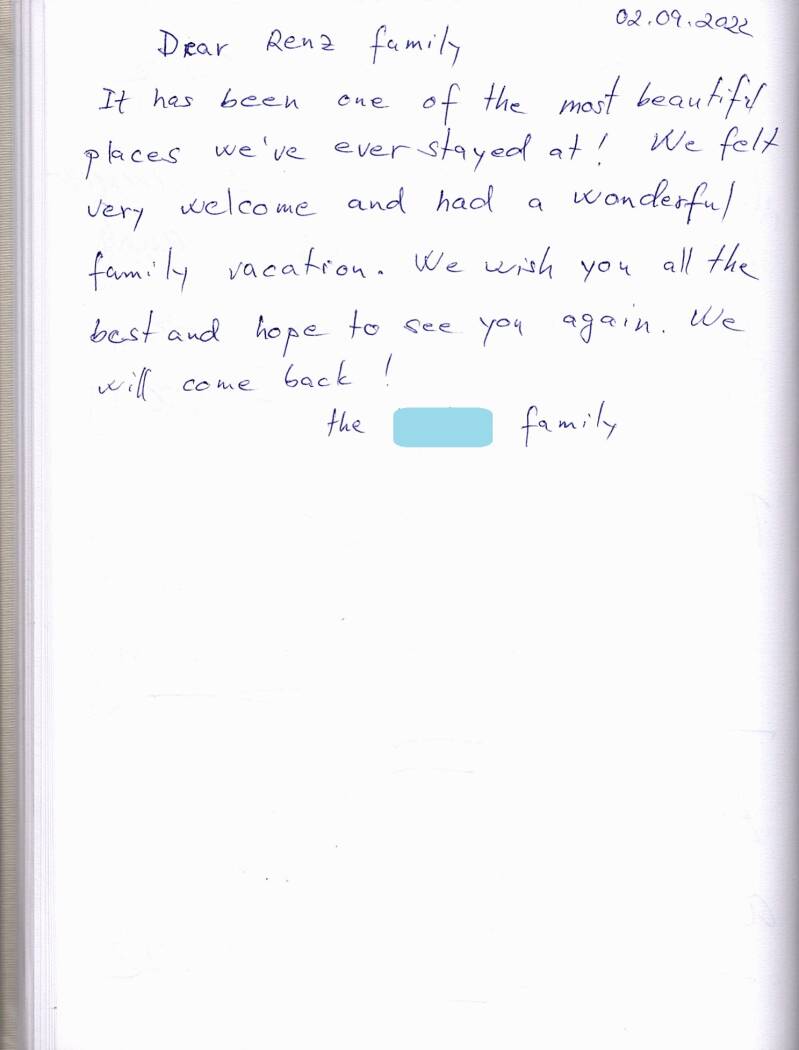 02.09.2022
Dear Renz family
It has been one of the most beautiful
places we've ever stayed at! We felt
very welcome and had a wonderful
family vacation. We wish you all the
best and hope to see you again. We
will come back!
the family